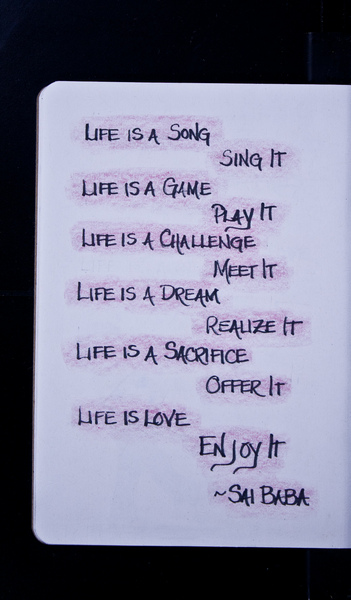 LIFE IS A SONG
SING IT
LIFE IS A GAME
PLAY IT
LIFE IS A CHALLENGE
MEET IT
LIFE IS A DREAM
REALIZE IT
LIFE IS A SACRIFICE
OFFER IT
LIFE IS LOVE
ENJOY IT
~SAI BABA